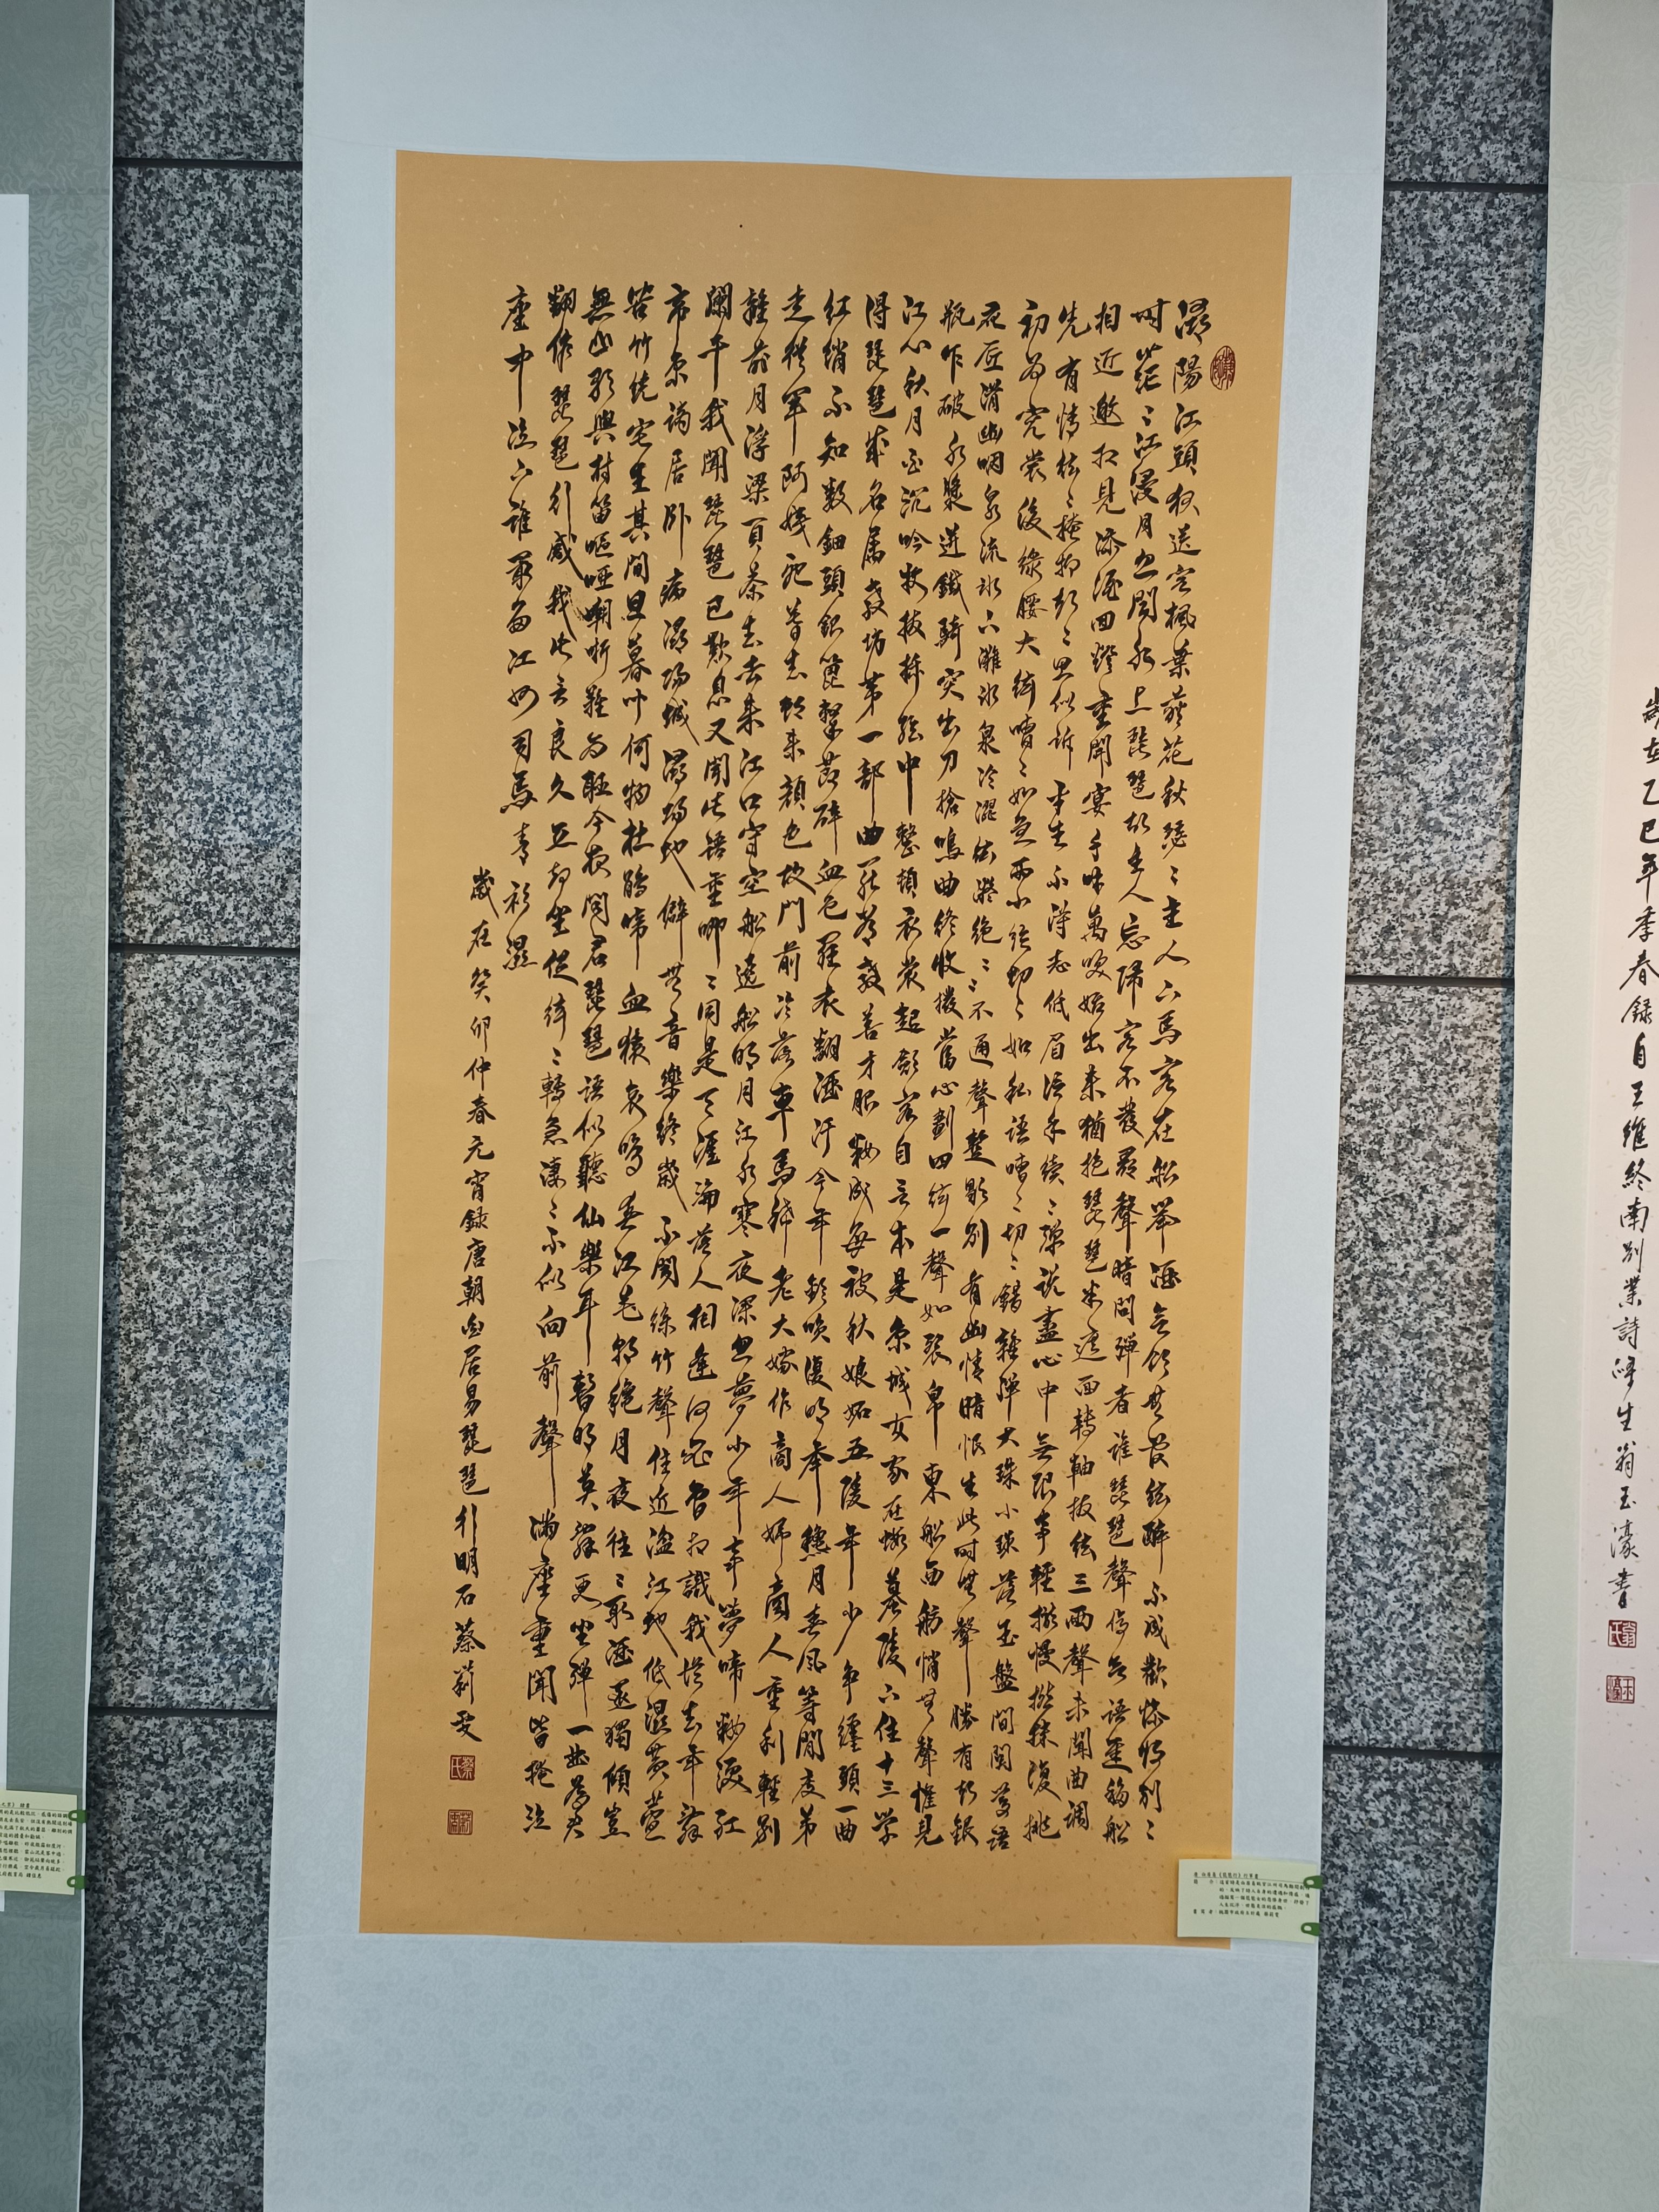 潯陽江頭夜送客楓葉荻花秋瑟ミ主人下馬客在船舉酒欲飲無管絃醉不成歡慘將別ミ
時茫ミ江浸月忽聞水上琵琶聲主人忘歸客不發尋聲暗問彈者誰琵琶聲停欲語遲移船
相近邀相見添酒回燈重開宴千呼萬喚始出來猶抱琵琶半遮面轉軸撥絃三兩聲未聞曲調
先有情絃ミ掩抑聲ミ思似訴平生不得志低眉信手續ミ彈說盡心中無限事輕攏慢撚抹復挑
初為霓裳後綠腰大絃嘈ミ如急雨小絃切ミ如私語嘈ミ切ミ錯雜彈大珠小珠落玉盤間關鶯語
花底滑幽咽泉流冰下灘冰泉冷澀絃凝絕ミミ不通聲暫歇別有幽情暗恨生此時無聲勝有聲銀
瓶乍破水漿迸鐵騎突出刀槍鳴曲終收撥當心劃四絃一聲如裂帛東船西舫悄無聲惟見
江心秋月白沉吟放撥插絃中整頓衣裳起斂容自言本是京城女家在蝦蟇陵下住十三學
得琵琶成名屬教坊第一部曲罷常教善才服妝成每被秋娘妬五陵年少爭纏頭一曲
紅綃不知數鈿頭銀篦擊節碎血色羅衣翻酒汙今年歡笑復明年秋月春風等閒度弟
走從軍阿姨死暮去朝來顏色故門前冷落車馬稀老大嫁作商人婦商人重利輕別
離前月浮梁買茶去去來江口守空船遶船明月江水寒夜深忽夢少年事夢啼妝淚紅
闌干我聞琵琶已歎息又聞此語重唧ミ同是天涯淪落人相逢何必曾相識我從去年辭
帝京謫居臥病潯陽城潯陽地僻無音樂終歲不聞絲竹聲住近湓江地低濕黃蘆
苦竹繞宅生其間旦暮聞何物杜鵑啼血猿哀鳴春江花朝秋月夜往ミ取酒還獨傾豈
無山歌與村笛嘔啞嘲哳難為聽今夜聞君琵琶語似聽仙樂耳暫明莫辭更坐彈一曲為君
翻作琵琶行感我此言良久立卻坐促絃ミ轉急淒ミ不似向前聲滿座重聞皆掩泣
座中泣下誰最多江州司馬青衫濕
歲在癸卯仲春元宵錄唐朝白居易琵琶行明石蔡莉雯
歲在乙巳年季春錄自王維終南別業詩 生翁玉濠書